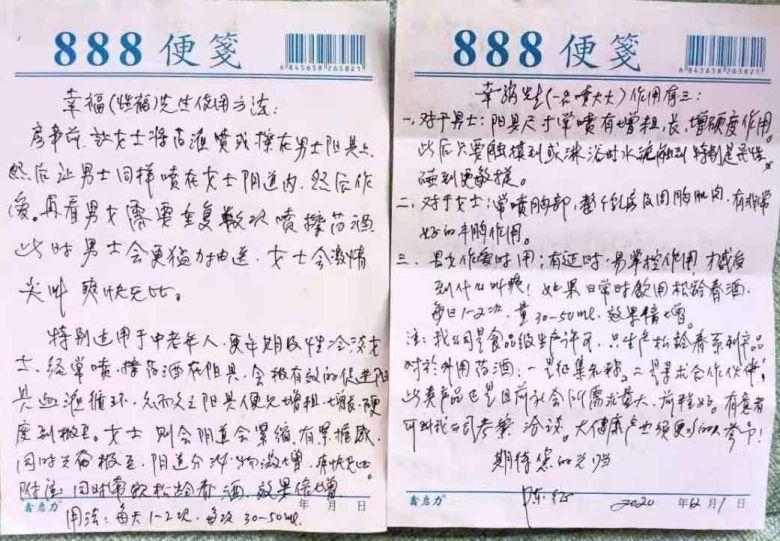 888便笺
6 845658 265821
幸福(性福)先生使用方法:
房事前,女士将药液喷或擦在男士阳具上
然后让男士同样喷在女士阴道内,然后作
爱。再看男女需要重复数次喷擦药酒
此时男士会更猛力抽送,女士会激情
尖叫 爽快无比。
特别适用于中老年人、更年期及性冷淡女
士,经常喷、擦药酒在阳具,会极有效的促进阳
具血液循环,久而久之阳具便见增粗、增长、硬
度到极至。女士则会阴道会紧缩,有紧握感,
同时兴奋极至,阴道分泌物激增,爽快无比
附注:同时常饮松龄春酒,效果倍增。
用法:每天1-2次,每次30-50ml。
鑫启力® 年 月 日
888便笺
6 845658 265821
幸福先生(一名喷大大)作用有三:
一、对于男士:阳具尺寸常喷有增粗、长、增硬度作用。
此后只要触摸到或淋浴时水流碰到特别是异性
碰到更敏捷。
二、对于女士:常喷胸部,整个乳房及周围肌肉,有非常
好的丰胸作用。
三、男女作爱时用;有延时、易掌控作用,才感受
到什么叫爽!如果日常时饮用松龄春酒,
每日1-2次,量30-50ml,效果倍增。
注:我公司是食品级生产许可,只生产松龄春系列产品
对于外用药酒:一是征集名称,二是寻求合作伙伴,
此类产品也是目前社会所需求量大、前程好。有意者
可到我公司考察、洽谈。大健康产业须更多的人参与!
期待您的光临
陈
2020年12月1日